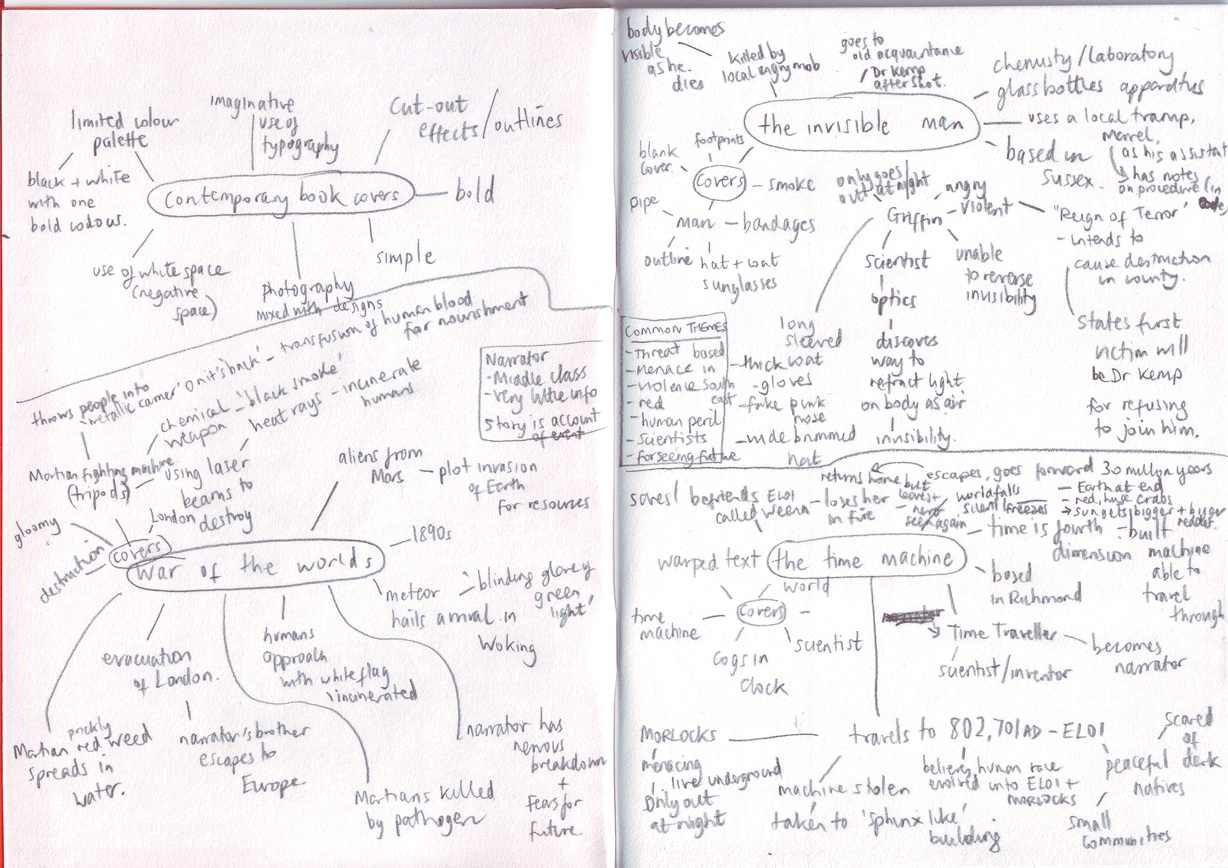 limited colour
palette
imaginative
use of
typography
cut-out
effects / outlines
black + white
with one
bold colour.
contemporary book covers
bold
use of white space
(negative
space)
photography
mixed with designs
simple
throws people into
'metallic carrier' on it's back' - transfusion of human blood
for nourishment
chemical - 'black smoke'
weapon
heat rays - incinerate
humans
Narrator
- Middle class
- very little info
Story is account
of event
Martian fighting machine
(tripods)
using laser
beams to
destroy
London
gloomy
destruction
covers
war of the worlds
aliens from
Mars
plot invasion
of Earth
for resources
1890s
meteor
hails arrival in
Woking
'blinding glare of
green
light'
evacuation
of London.
narrator's brother
escapes to
Europe
humans
approach
with white flag
'incinerated
Martian red weed
prickly
spreads in
water.
Martians killed
by pathogen
narrator has
nervous
breakdown
+
fears for
future
body becomes
visible
as he
dies
killed by
local angry mob
goes to
old acquaintance
/ Dr Kemp
after shot.
the invisible man
chemistry / laboratory
glass bottles apparatus
uses a local tramp,
Marvel,
as his assistant
has notes
on procedure (in code)
based in
Sussex.
footprints
blank
cover
covers
smoke
pipe
man
bandages
outline
hat + coat
sunglasses
only goes
out at night
angry
violent
Griffin
"Reign of Terror'
- intends to
cause destruction
in county.
states first
victim will
be Dr Kemp
for refusing
to join him.
scientist
optics
discoves
way to
refract light
on body as air
invisibility.
unable
to reverse
invisibility
long
sleeved
- thick coat
- gloves
- fake pink
nose
- wide brimmed
hat
COMMON THEMES
- Threat based
- menace in
- violence south
east
- red
- human peril
- scientists
- forseeing future
saves / befriends ELOI
called weena
loses her
in fire
returns home but
leaves +
never
seen again
escapes, goes forward 30 million years
world falls
silent + freezes
- Earth at end
- red, huge crabs
→ sun gets bigger + bigger
redder.
warped text
the time machine
time is fourth
dimension
built
machine
able to
travel
through
based
in Richmond
world
covers
time
machine
cogs in
clock
scientist
Time Traveller
scientist / inventor
becomes
narrator
MORLOCKS
menacing
live underground
only out
at night
travels to 802,701 AD - ELOI
machine stolen
taken to 'sphinx like'
building
believes human race
evolved into ELOI +
MORLOCKS
scared
of
dark
peaceful
natives
small
communities